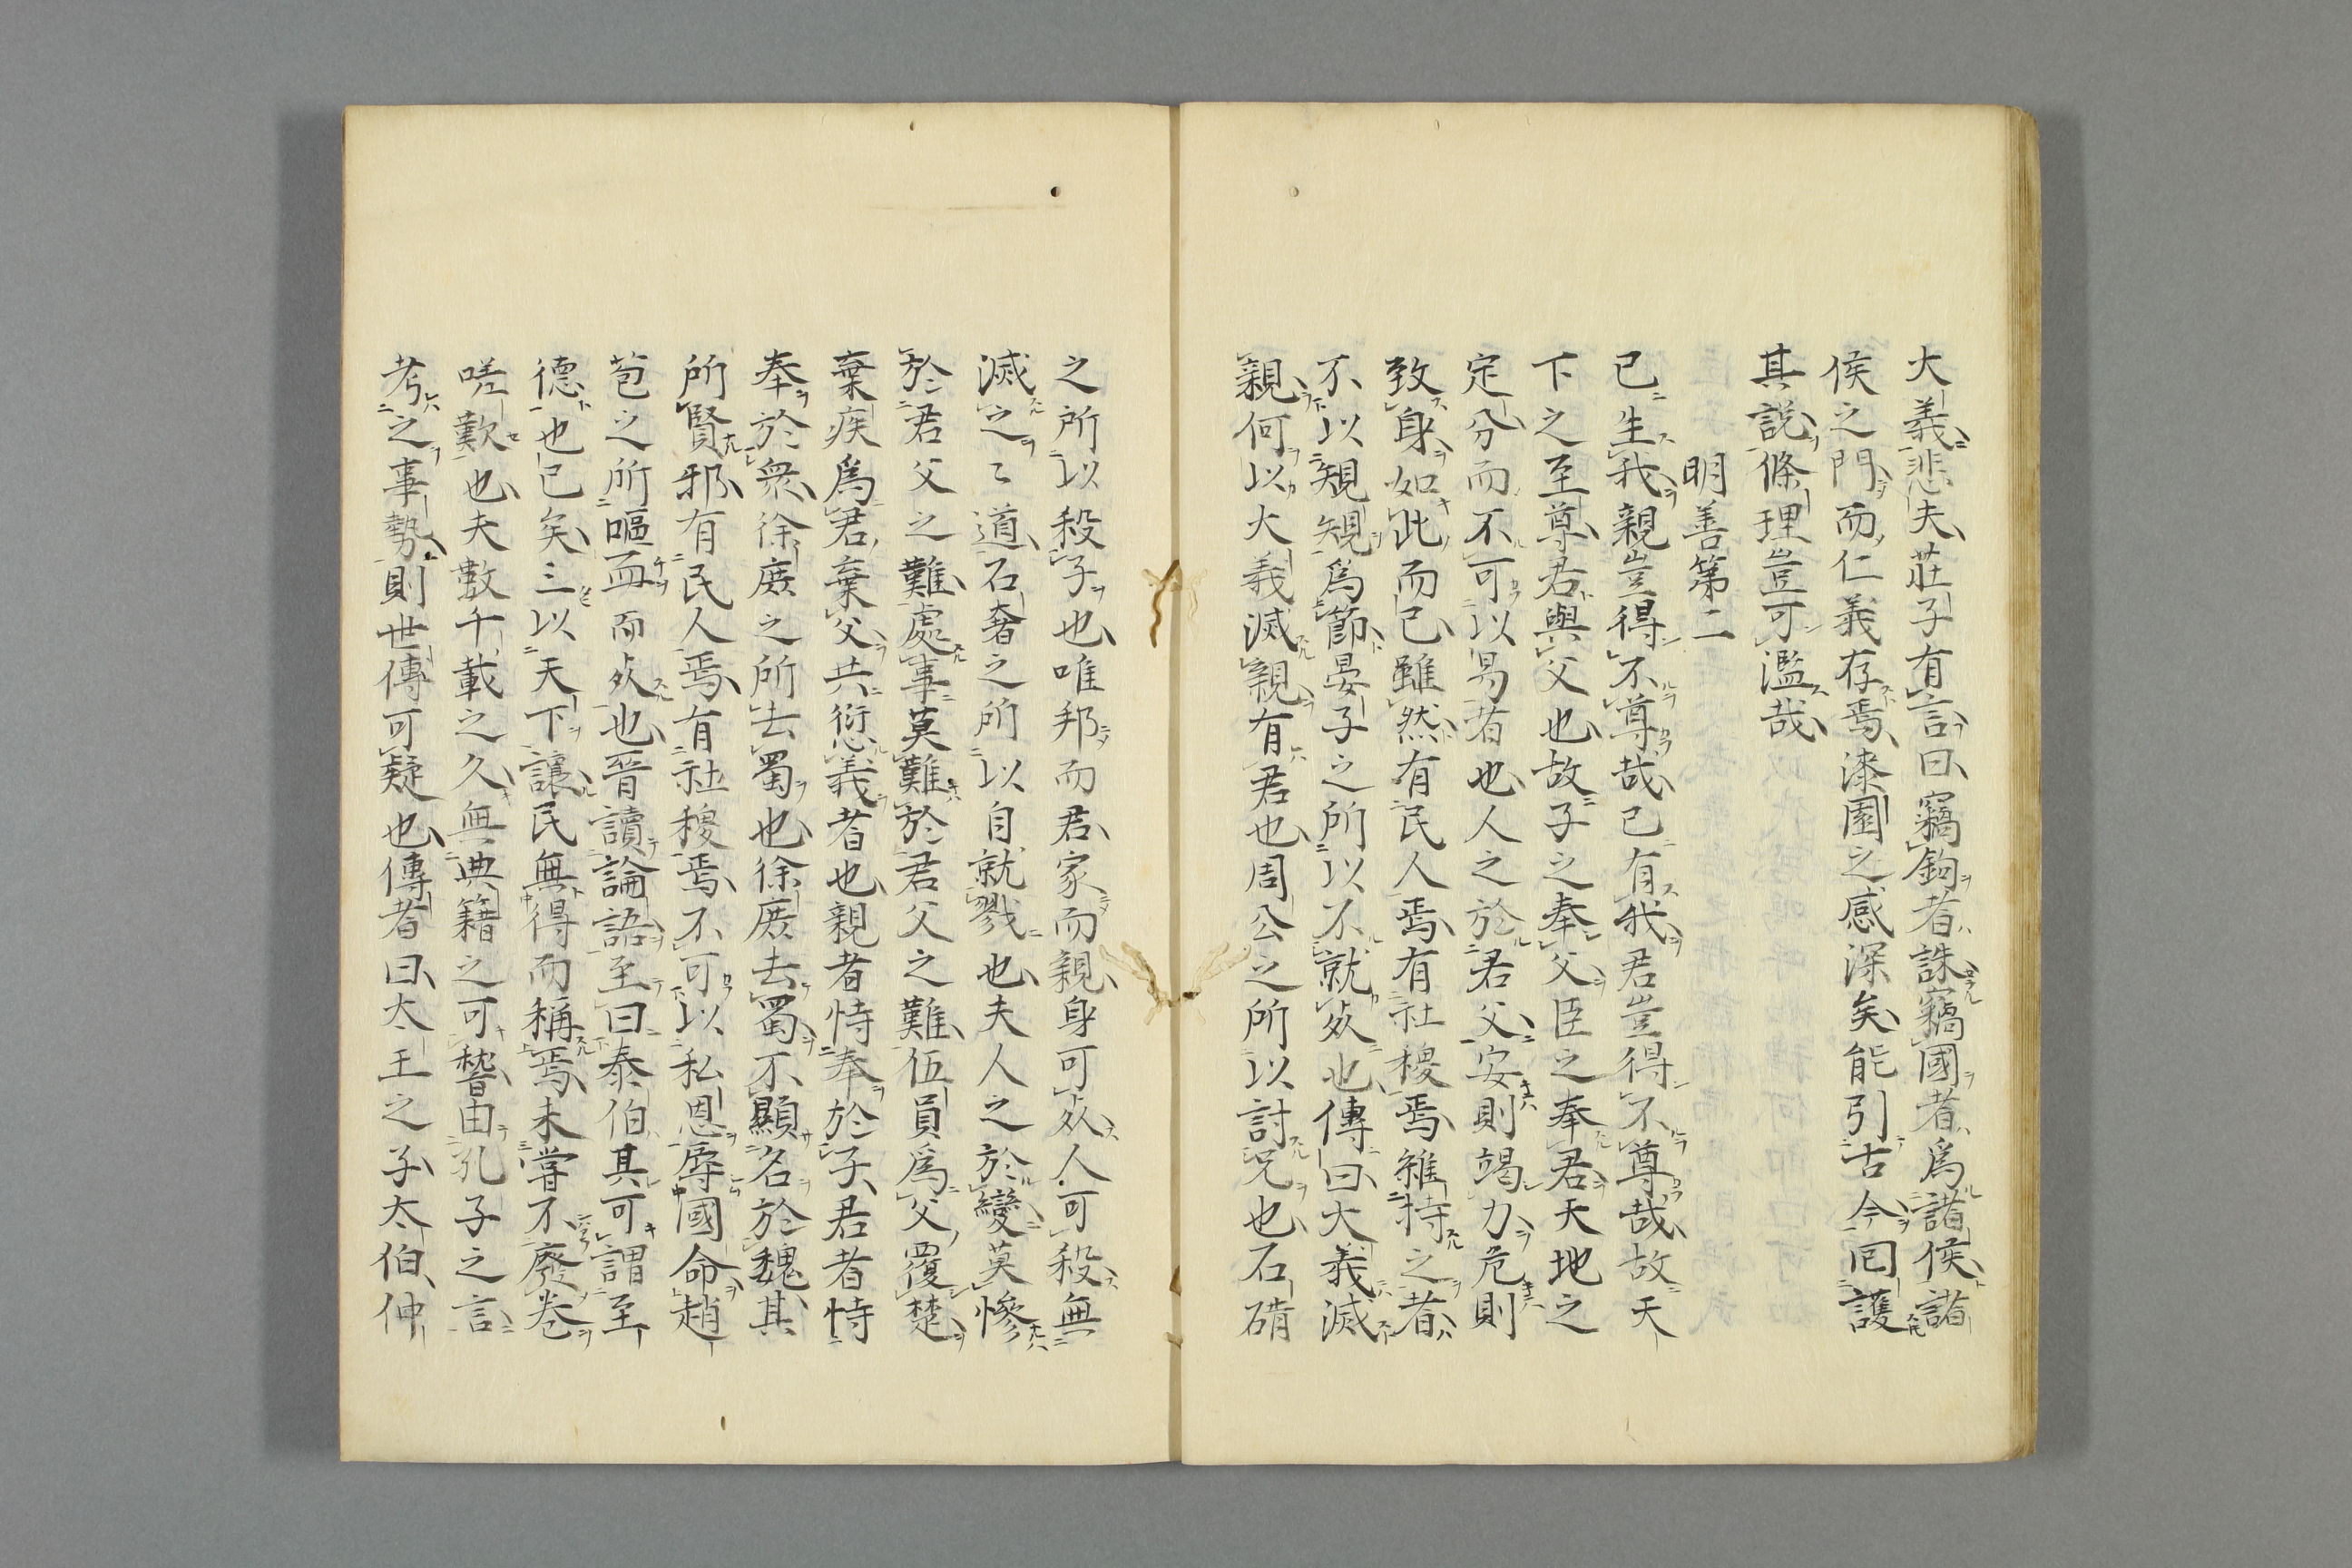 大義悲夫莊子有言曰竊鉤者誅竊國者爲諸侯諸
侯之門而仁義存焉漆園之感深矣能引古今回護
其説條理豈可濫哉
明善第二
已生我親豈得不尊哉已有我君豈得不尊哉故天
下之至尊君與父也故子之奉父臣之奉君天地之
定分而不可以易者也人之於君父安則竭力危則
致身如此而已雖然有民人焉有社稷焉雖恃之者
不以規規爲節晏子之所以不就死也傳曰大義滅
親何以大義滅親有君也周公之所以討兄也石碏
之所以殺子也唯邦而君家而親身可死人可殺無
滅之〻道石奢之所以自就戮也夫人之於變莫慘
於君父之難處事莫難於君父之難伍員爲父覆楚
棄疾爲君棄父共愆義者也親者恃奉於子君者恃
奉於衆徐庶之所去蜀也徐庶去蜀不顯名於魏其
所賢邪有民人焉有社稷焉不可以私恩辱國命趙
苞之所嘔血而死也晉讀論語至曰泰伯其可謂至
德也已矣三以天下讓民無得而稱焉未嘗不廢卷
嗟歎也夫數千載之久無典籍之可稽由孔子之言
考之事勢則世傳可疑也傳者曰大王之子太伯仲